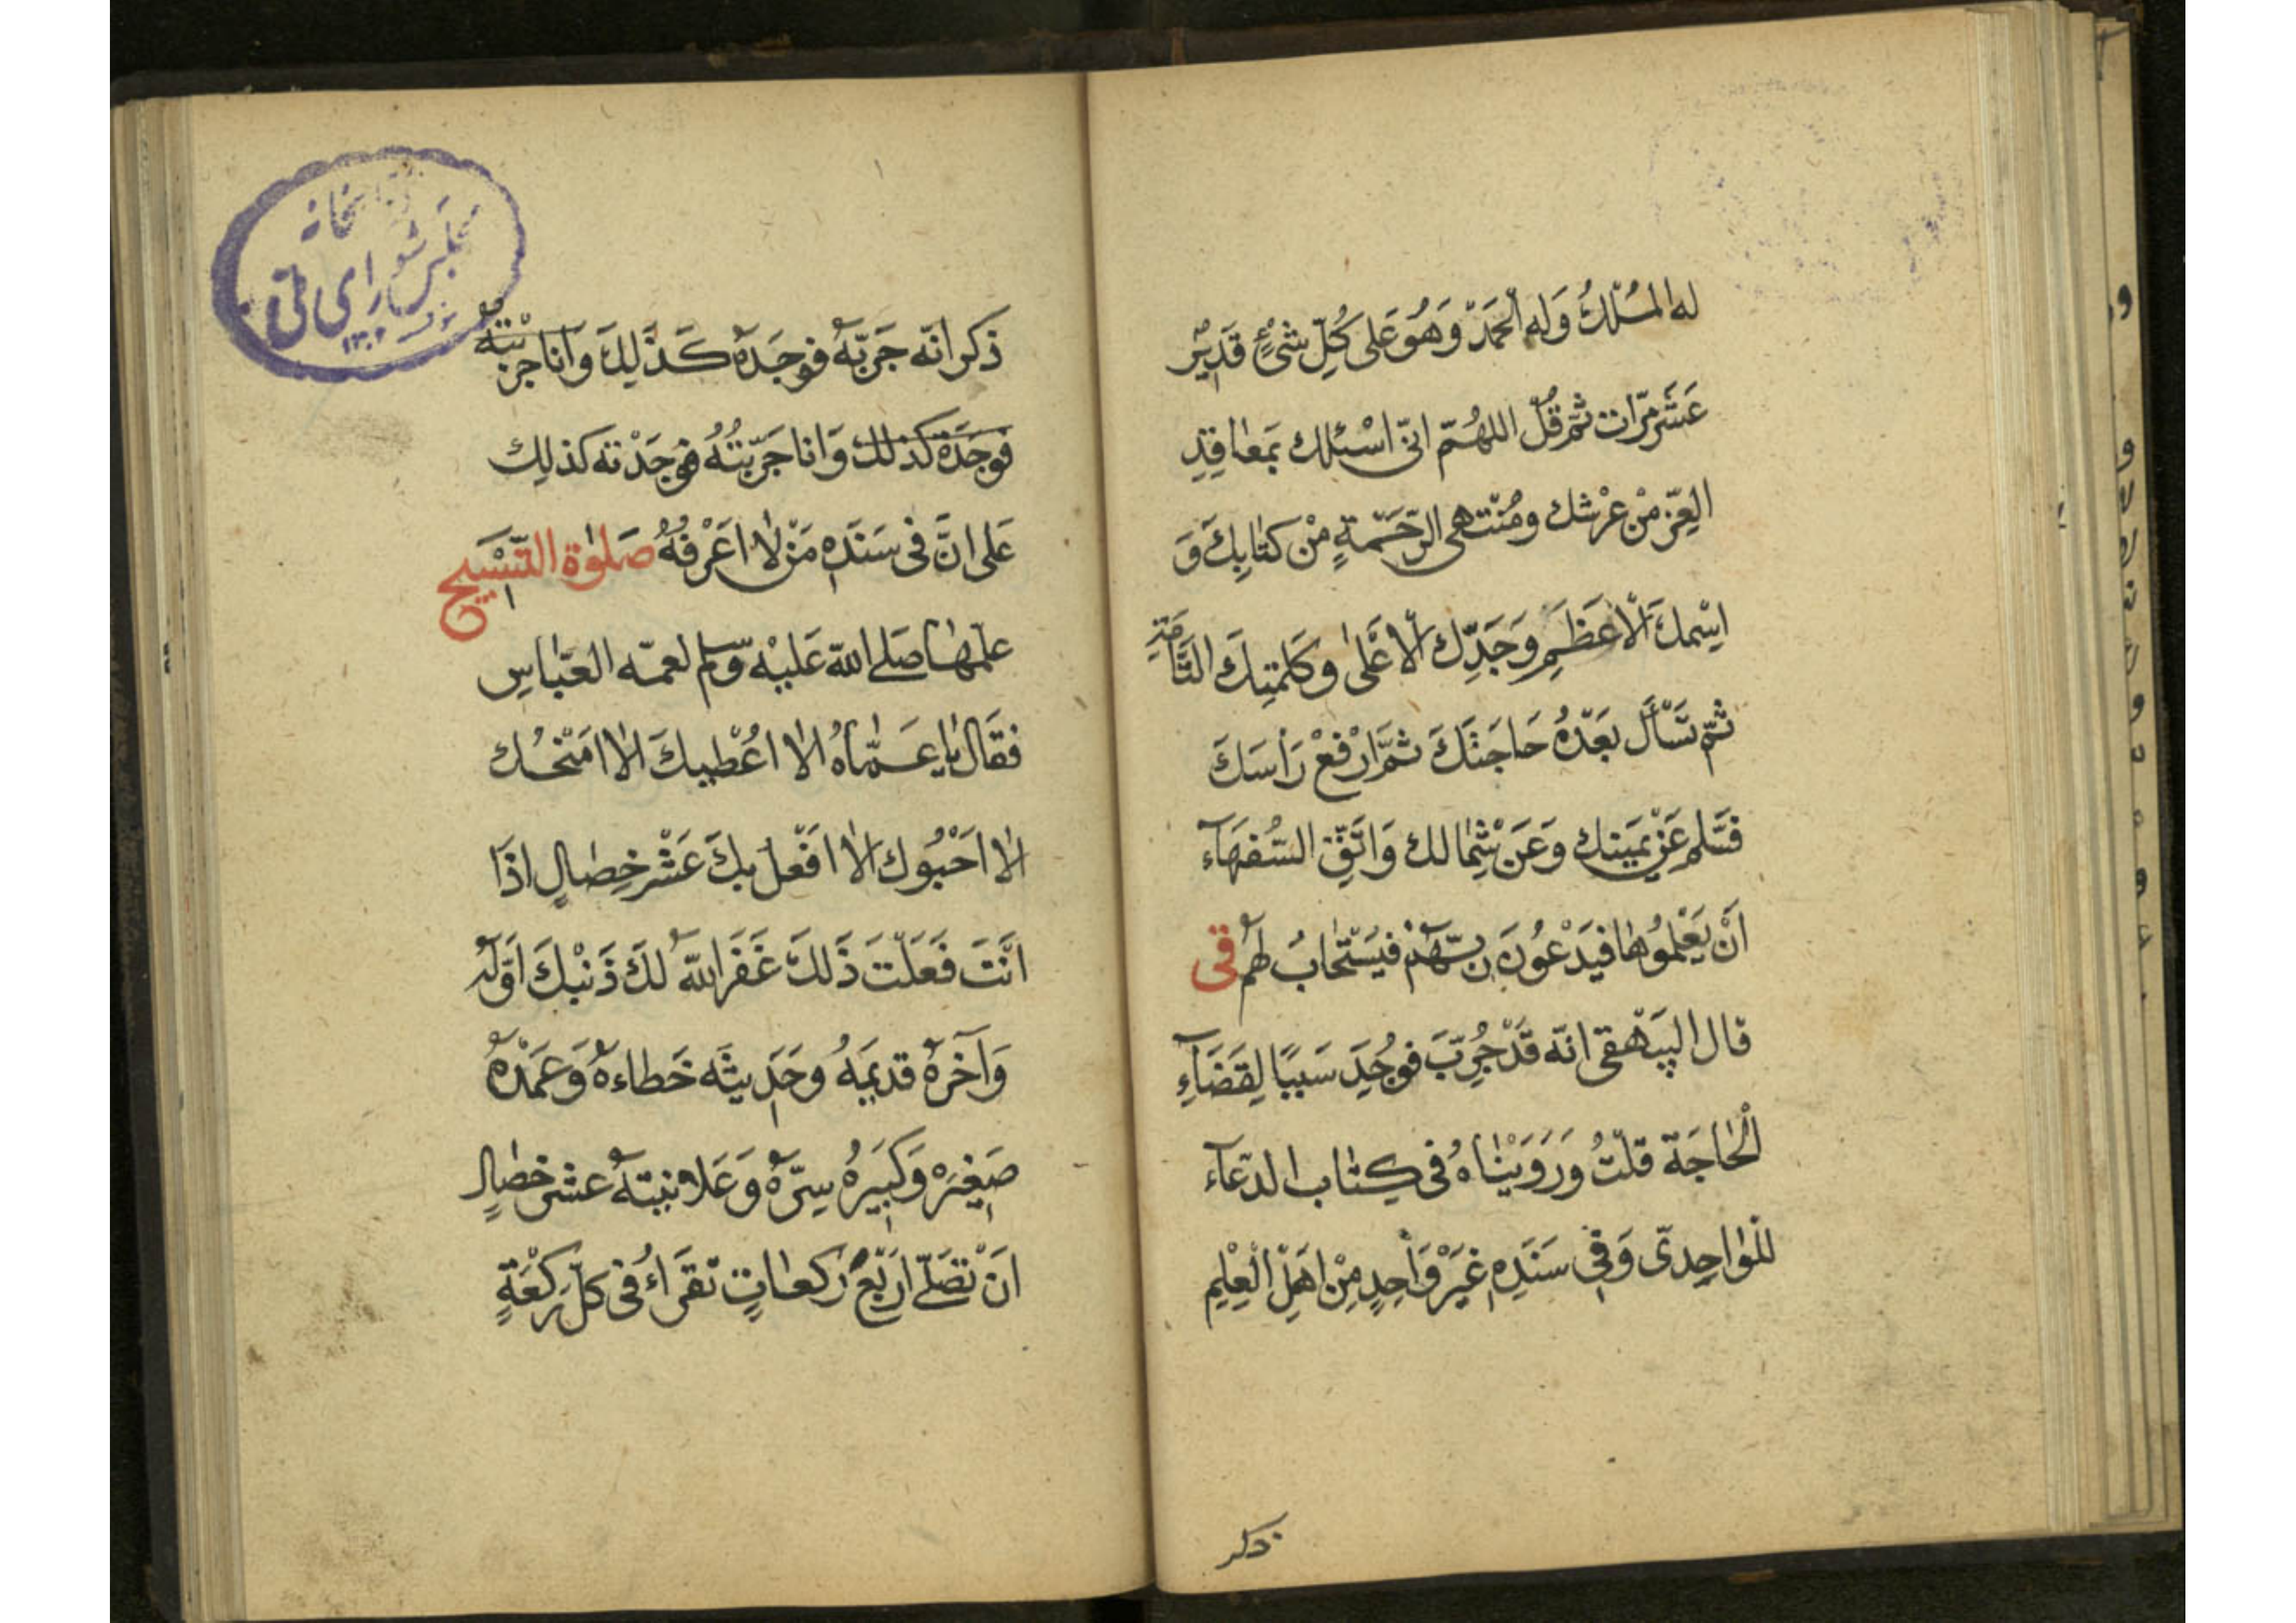 له المُلْكُ وَله الْحَمَدْ وَهُوَ عَلى كُلِّ شَىْءٍ قَدِيْر
عَشَر مَرّات ثُمّ قُل اللهُمّ انّى اسْئلك بَمعٰاقِدِ
العِزّ مْن عَرْشك ومُنْتهى الرّحَمْةِ مْن كتابِكَ وَ
اسْمكَ الْاعَظَمِ وَجَدِّك الْاعَلى وكَلمتِكَ التَّامَّةِ
ثمّ تسَأَل بَعَدْهُ حَاجَتَكَ ثمَّ ارْفَعْ رَأسَكَ
فسَّلم عَنْ يَمَينك وَعَن شِمٰالك وَاتَّقِ السّفهَاء
اَنْ يَعْلموُها فيَدْعُونَ ربّهَمْ فيَسْتجٰابُ لهم قى
قال البَيْهقى انّه قَدْ جُرِّبَ فوُجَدَ سَببًا لِقضَاءِ
الْحٰاجَة قلْتُ وَرَوَيْنٰاهُ فى كِتٰاب الدّعآء
للوٰاحِدىّ وَفِى سَنَدِهِ غَيَرْ وَاحِدٍ مِنْ اهَلِ الْعِلْمِ
ذكر
كتابخانهٔ
مجلس شوراى ملّى
ذكر انّه جَرّبهُ فوجَدَهُ كَذَلِكَ وَانا جربْتهُ
فوجَدَه كذلك وَانا جَرّبتُهُ فوجَدْته كذلِك
عَلى انَّ فى سَنَدِهِ مَنْ لٰا اعَرْفهُ صَلوٰة التَّسْبيح
علّمهٰا صَلى اللّه عَليْه وّسلم لعمّه العَبّاسِ
فقَال يٰا عَمّٰاهُ الٰا اعُطْيكَ الٰا امَنْحُك
الٰا احَبْوُك الٰا افَعْل بكَ عَشْر خِصٰالٍ اذَا
انَتَ فَعَلَتَ ذَلكَ غَفَر اللّهُ لكَ ذَنْبكَ اَوّله
وَآخَرهُ قديمَهُ وحَدِيثَه خَطاءهُ وَعَمَدْهُ
صَغِيَره وَكبَيِرهُ سِرّهُ وَعَلانيتهُ عشر خصٰالٍ
انَ تصَلّى ارَبَع رَكعٰاتٍ تقرَاءُ فى كلّ رَكعْةٍ